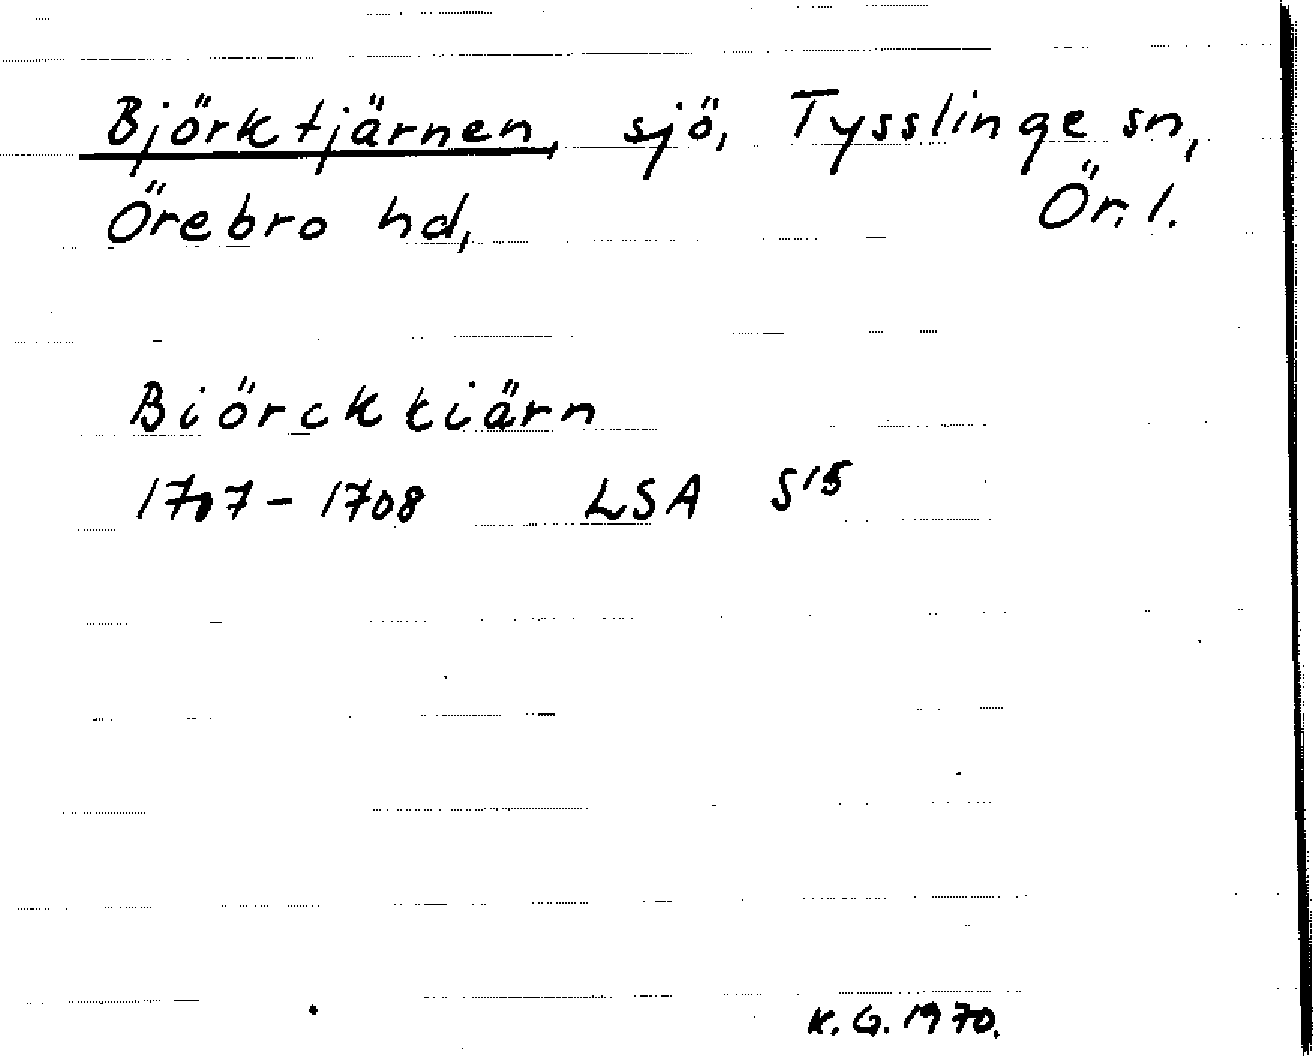 Björktjärnen, sjö, Tysslinge sn,
Örebro hd, Ör. l.
Biörcktiärn
1707-1708 LSA S15
K. G. 1970.